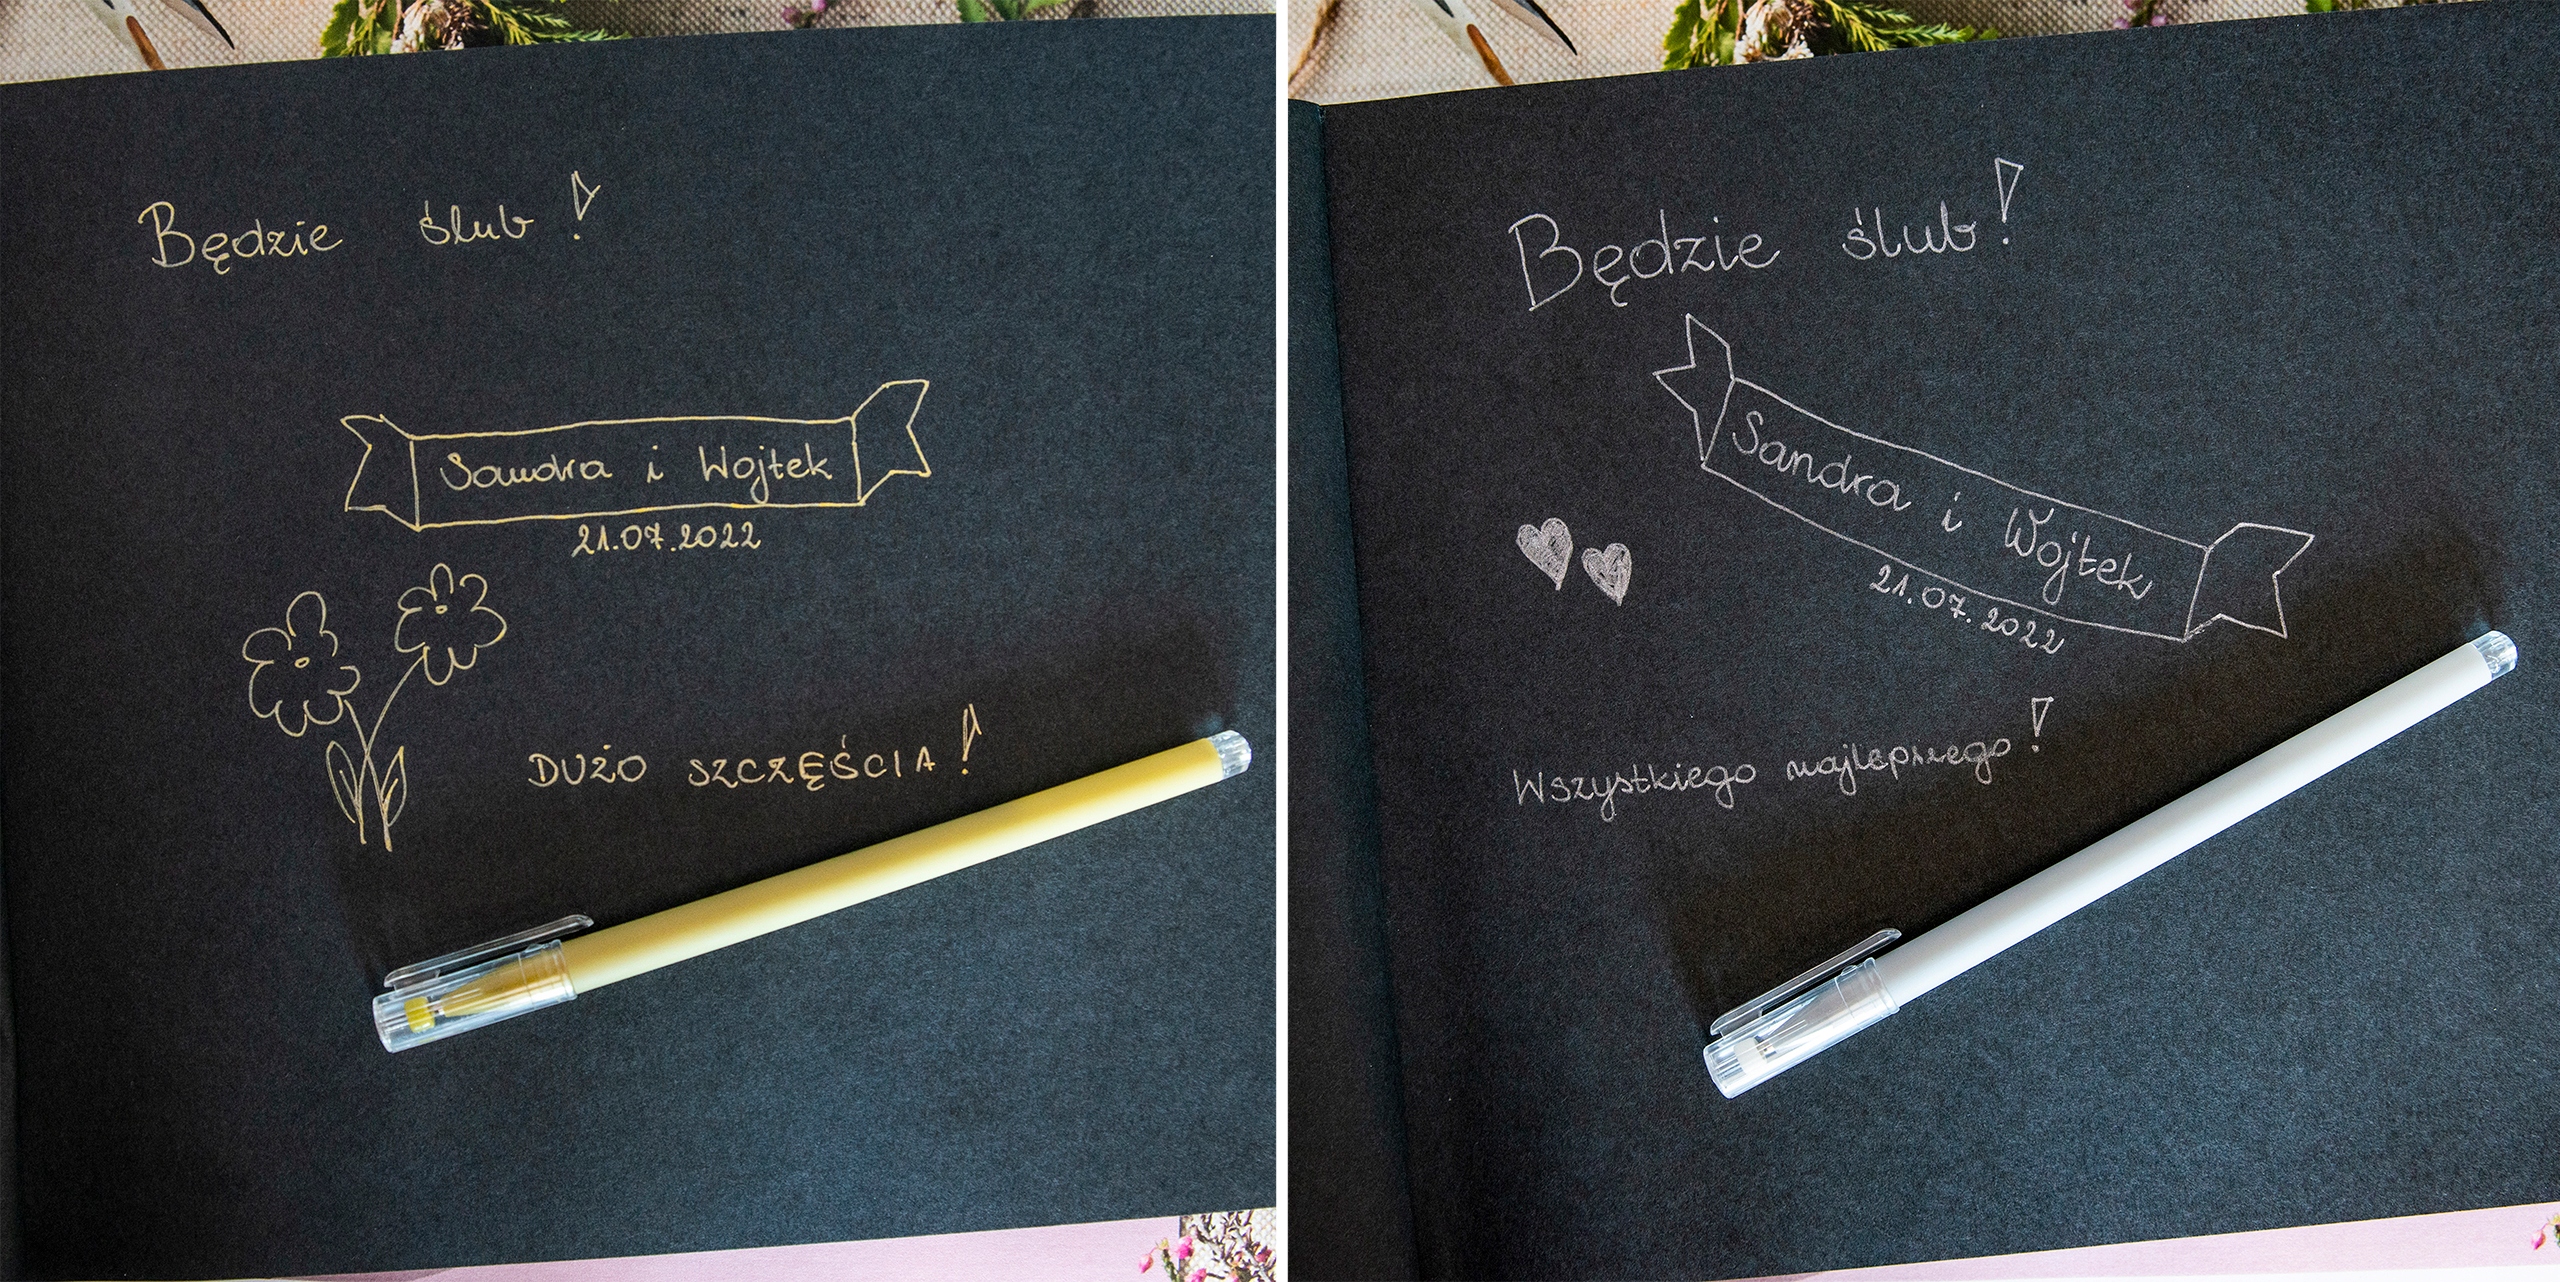 Będzie ślub!
Sandra i Wojtek
21.07.2022
DUŻO SZCZĘŚCIA!
Będzie ślub!
Sandra i Wojtek
21.07.2022
Wszystkiego najlepszego!